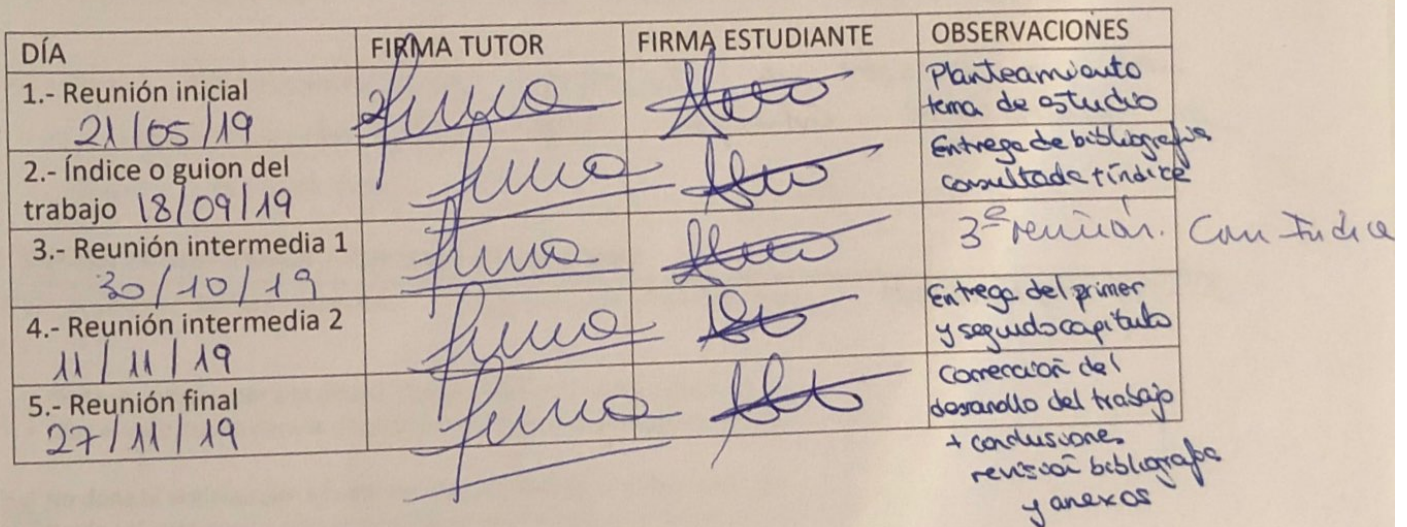 DÍA FIRMA TUTOR FIRMA ESTUDIANTE OBSERVACIONES
1.- Reunión inicial
21/05/19
Planteamiento
tema de estudio
2.- Índice o guion del
trabajo 18/09/19
Entrega de bibliografía
consultada + índice
3.- Reunión intermedia 1
30/10/19
3ª reunión. Con Indice
4.- Reunión intermedia 2
11/11/19
Entrega del primer
y segundo capítulo
5.- Reunión final
27/11/19
Corrección del
desarrollo del trabajo
+ conclusiones
revisión bibliografía
y anexos